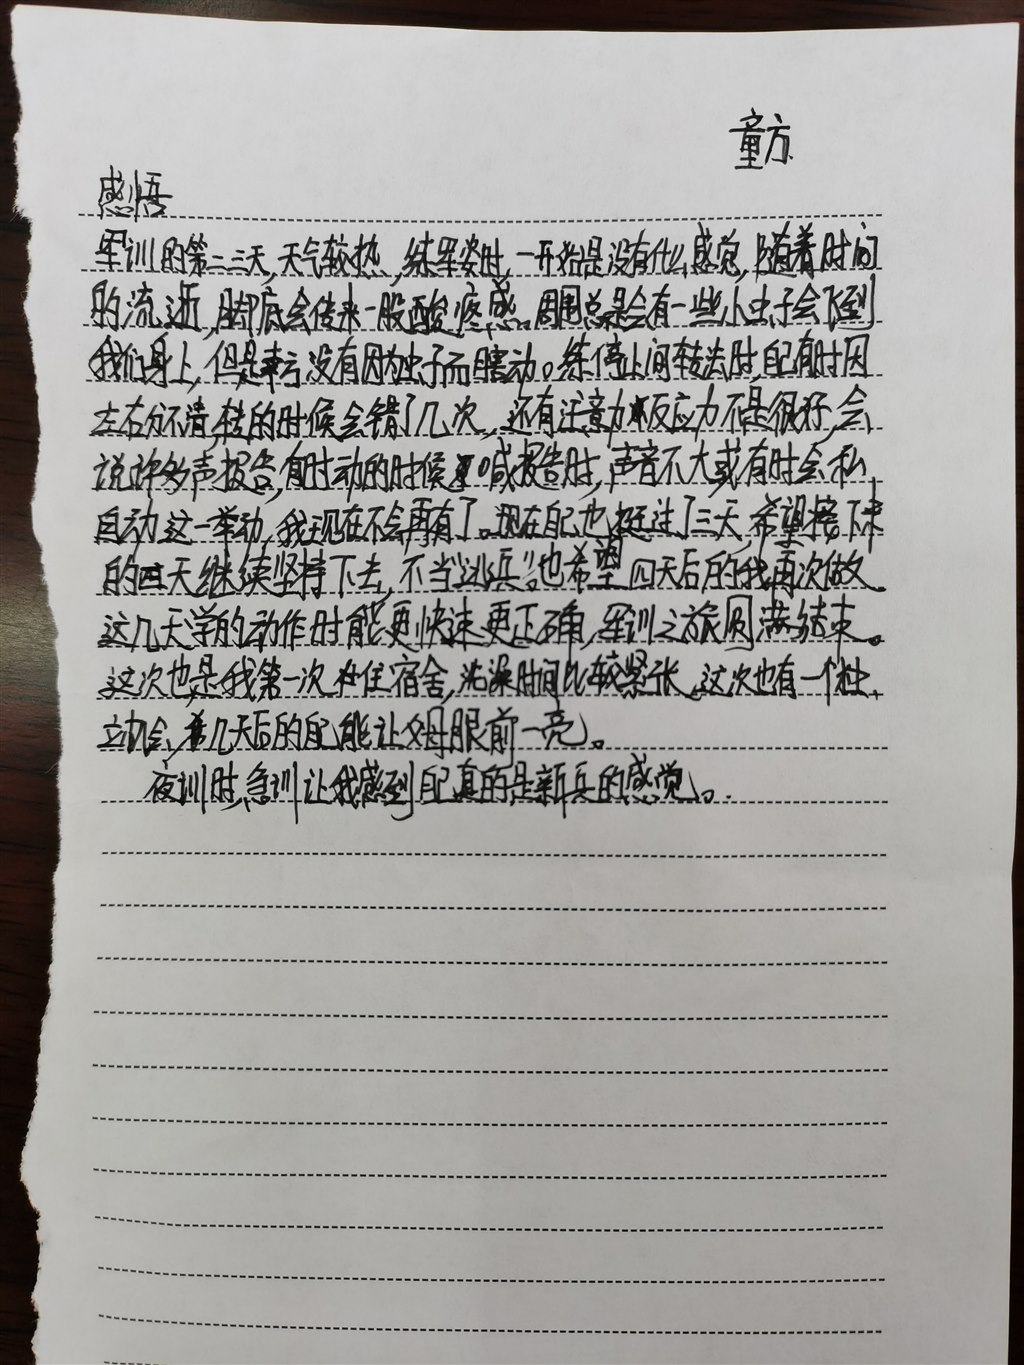 童方
感悟
军训的第二三天,天气较热,练军姿时,一开始是没有什么感觉,随着时间
的流逝,脚底会传来一股酸疼感。周围总是会有一些小虫子会飞到
我们身上,但是幸亏没有因为虫子而瞎动。练停止间转法时,自己有时因
左右分不清,转的时候会错了几次,还有注意力和反应力不是很好,会
说许多声报告,有时动的时候喊报告时,声音不大或有时会私
自动这一举动,我现在不会再有了。现在自己也挺过了三天,希望接下来
的四天继续坚持下去,不当“逃兵”。也希望四天后的我再次做
这几天学的动作时能更快速更正确,军训之旅圆满结束。
这次也是我第一次在住宿舍,洗澡时间比较紧张,这次也有一个独
立机会,希几天后的自己能让父母眼前一亮。
夜训时,急训让我感到自己真的是新兵的感觉。